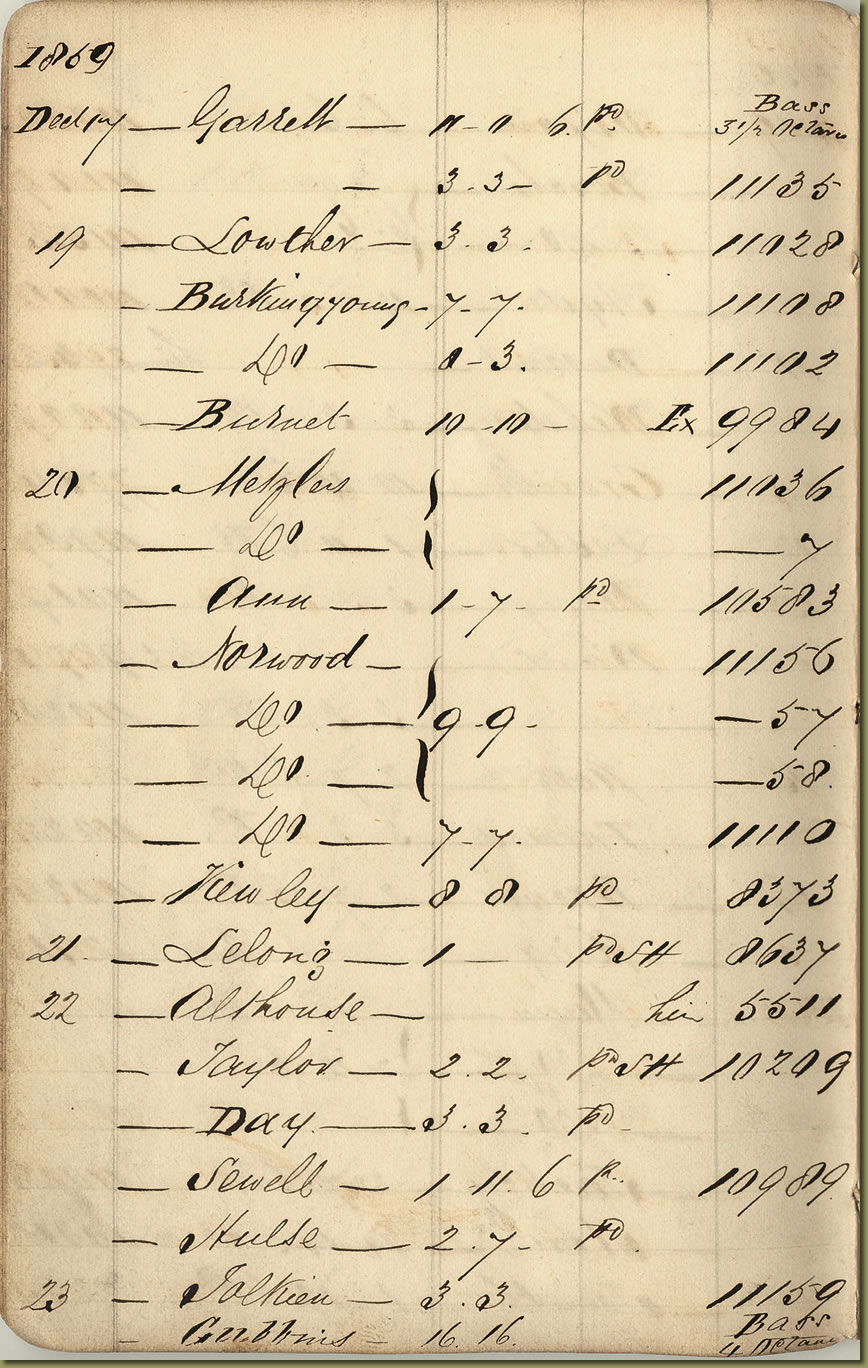 1869
Dec 17 — Garrett — 11 - 11 6. pd. Bass 3 1/2 Octave
— — 3 . 3 — pd 11135
19 — Lowther — 3 . 3 . 11028
- Burkingyoung - 7 - 7. 11108
— Do — 8 - 3. 11102
— Burnet 10 - 10 - Ex 9984
20 — Metzlers 11036
— Do — — 7
— Ann — 1 - 7 - pd 10583
— Norwood — 11156
— Do — 9 - 9 - — 57
— Do — — 58.
— Do — 7 - 7. 11110
— Kewley — 8 8 pd 8373
21 — Lelong — 1 — pd SH 8637
22 — Althouse — 5511
- Taylor — 2 . 2 . pd SH 10209
— Day — 3 . 3 . pd -
— Sewell — 1 - 11. 6 p.. 10989
— Hulse — 2 . 7 - pd.
23 — Tolkien — 3 . 3. 11159
- Gubbins - 16. 16. Bass 4 Octave